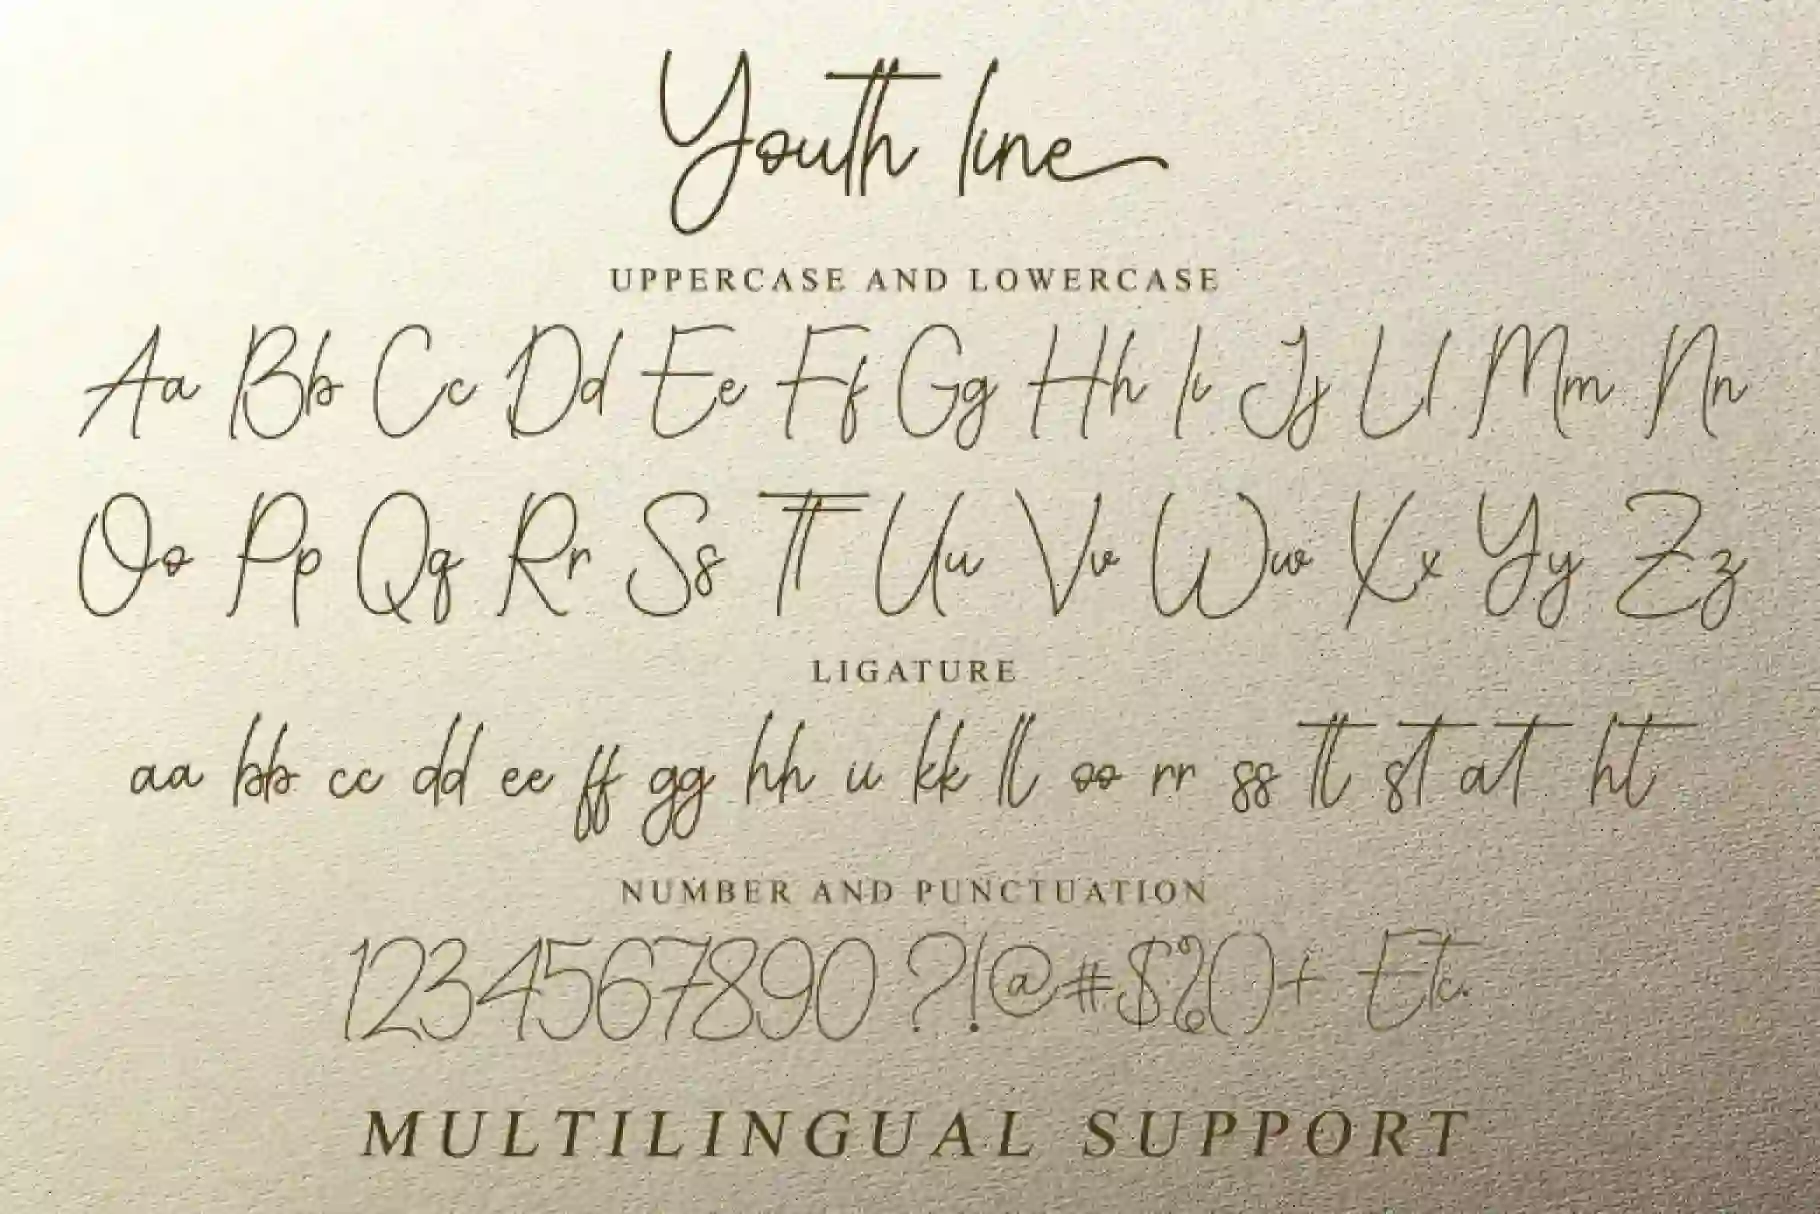 Youth line
UPPERCASE AND LOWERCASE
Aa Bb Cc Dd Ee Ff Gg Hh Ii Jj Ll Mm Nn
Oo Pp Qq Rr Ss Tt Uu Vv Ww Xx Yy Zz
LIGATURE
aa bb cc dd ee ff gg hh ii kk ll oo rr ss tt st at ht
NUMBER AND PUNCTUATION
1234567890 ?!@#$%()+ Etc.
MULTILINGUAL SUPPORT